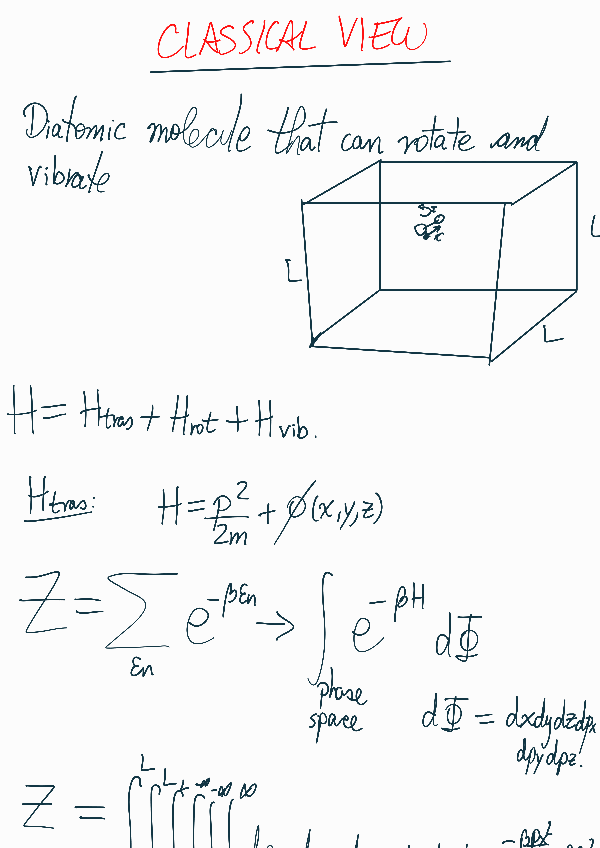 CLASSICAL VIEW
Diatomic molecule that can rotate and
vibrate
L
L
L
H = Htras + Hrot + Hvib.
Htras: H = p²/2m + ϕ(x,y,z)
Z = ∑ e^-βEn → ∫ e^-βH dΦ
εn
phase
space
dΦ = dxdydzdpx
dpydpz.
Z =
L L L
∞